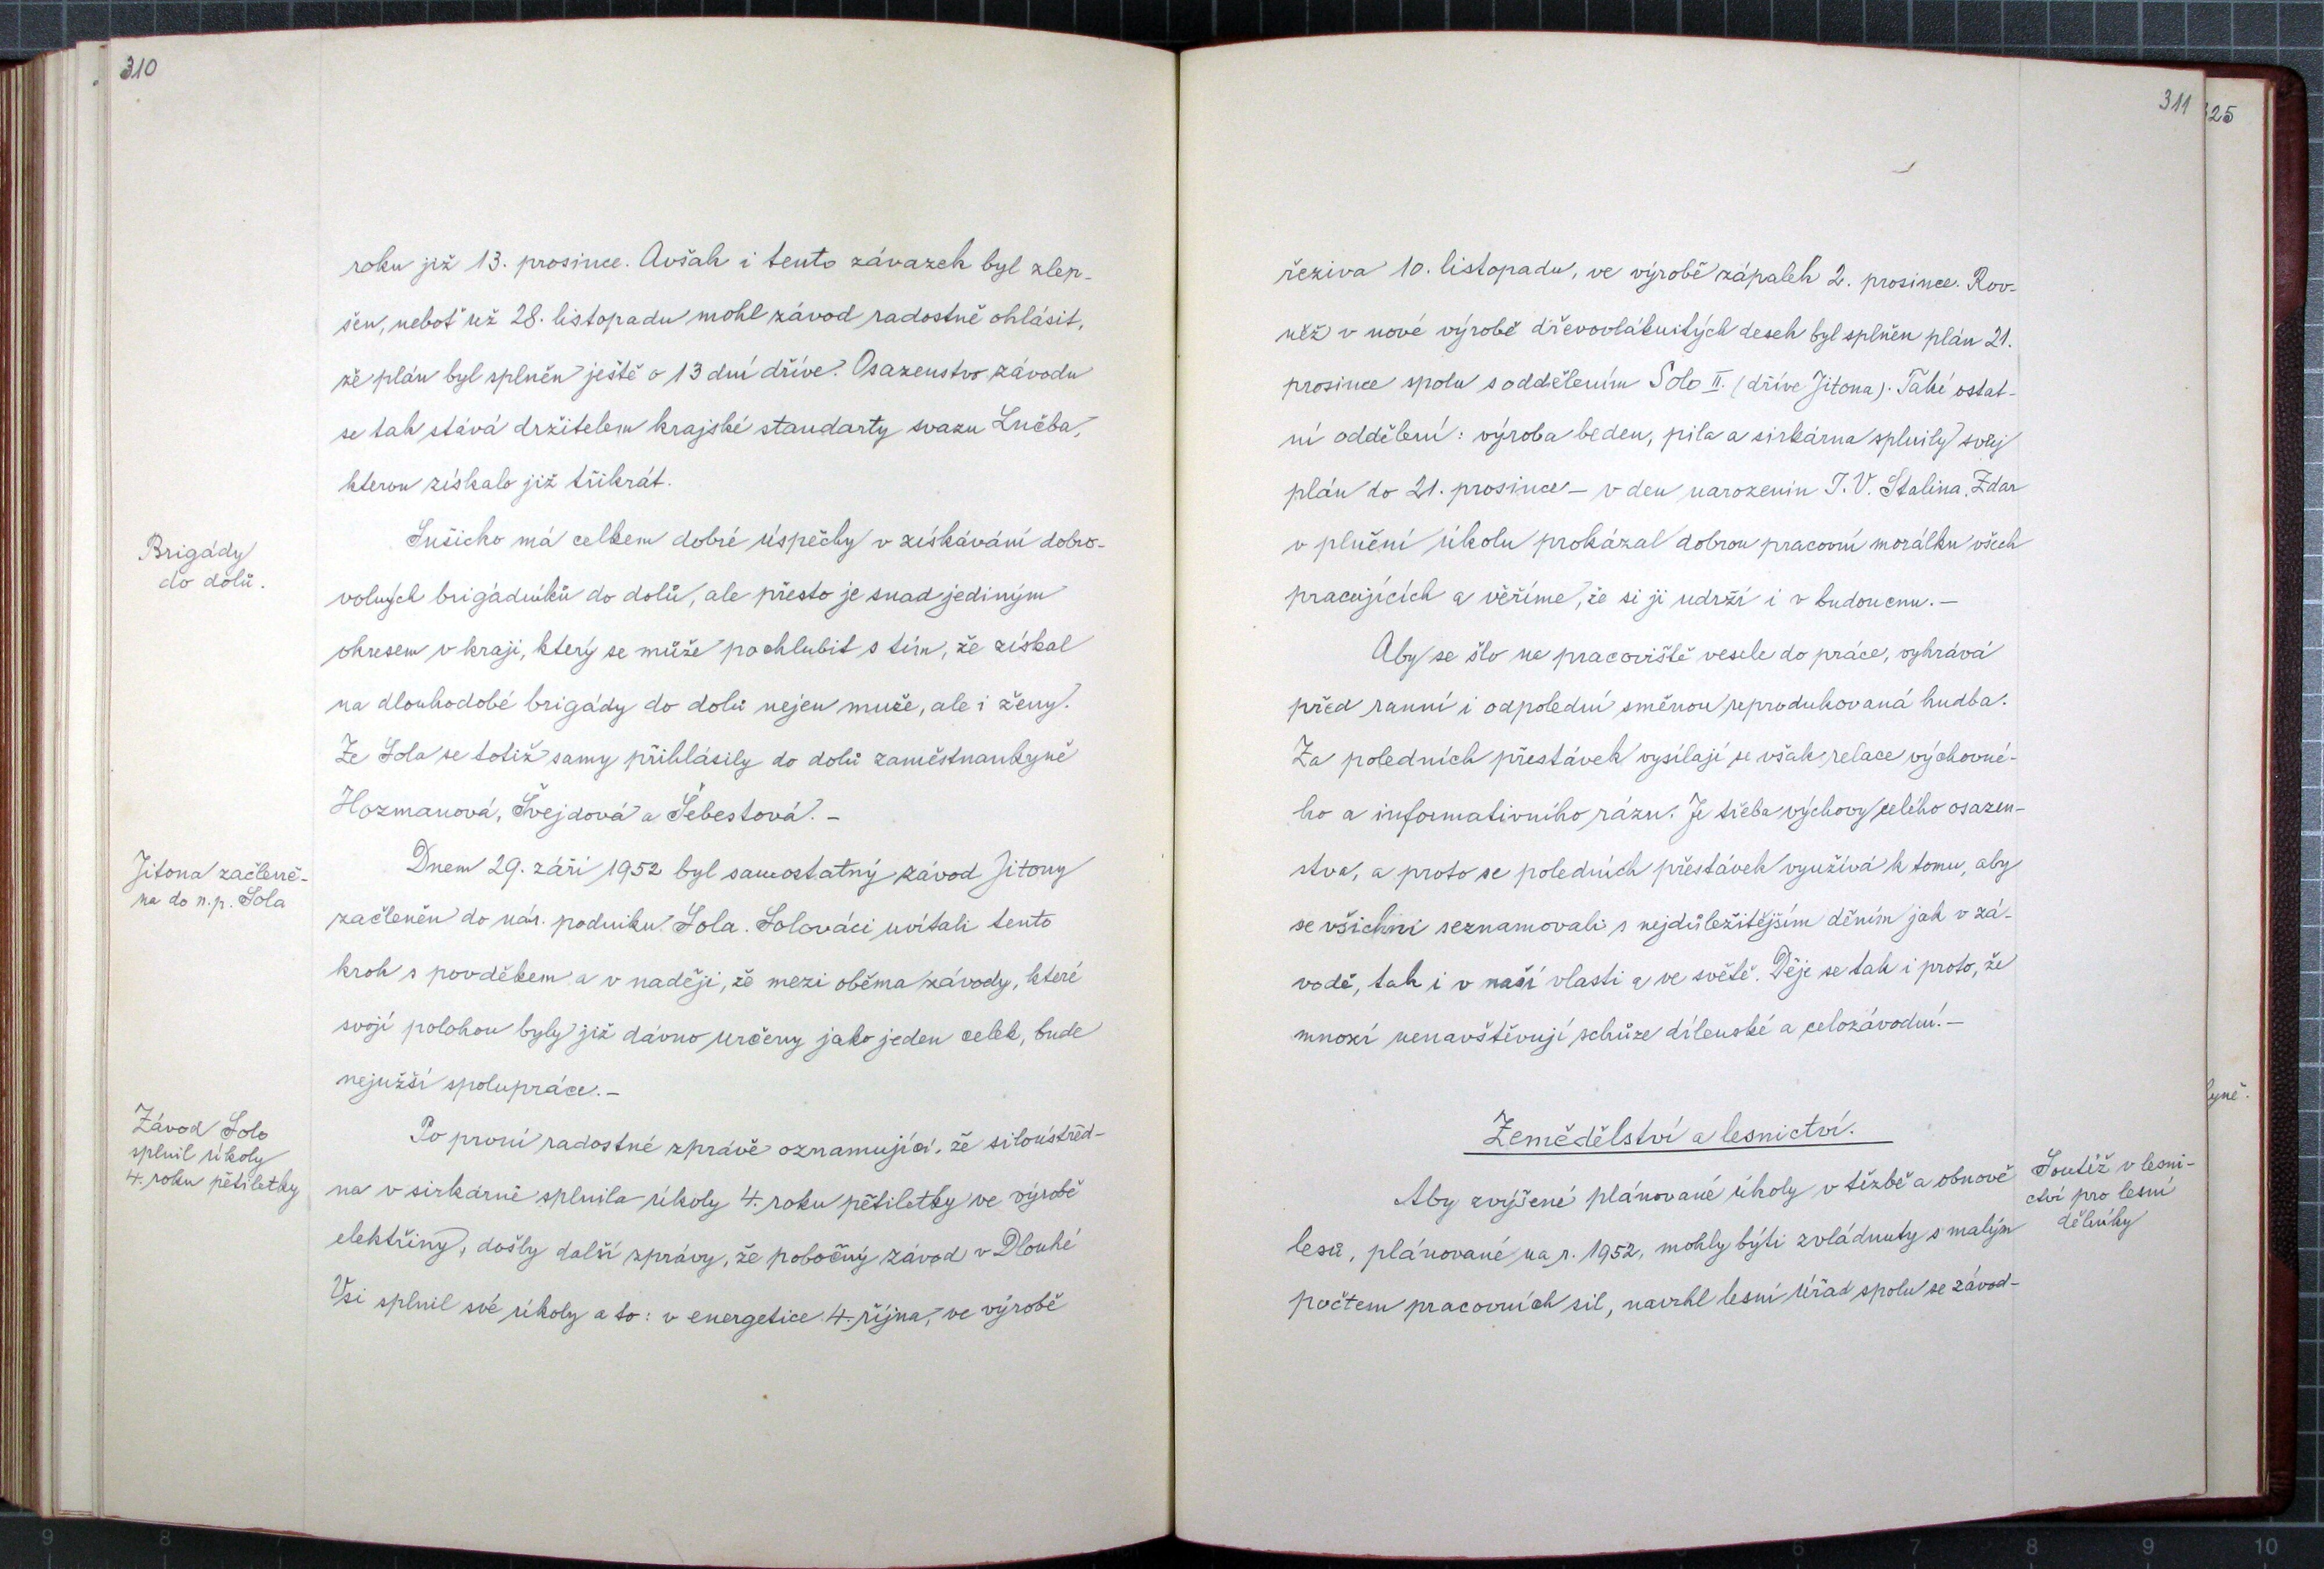 310
roku již 13. prosince. Avšak i tento závazek byl zlep-
šen, neboť už 28. listopadu mohl závod radostně ohlásit,
že plán byl splněn ještě o 13 dní dříve. Osazenstvo závodu
se tak stává držitelem krajské standarty svazu Lučba,
kterou získalo již třikrát.
Brigády
do dolů.
Sušicko má celkem dobré úspěchy v získávání dobro-
volných brigádníků do dolů, ale přesto je snad jediným
okresem v kraji, který se může pochlubit s tím, že získal
na dlouhodobé brigády do dolů nejen muže, ale i ženy.
Ze Sola se totiž samy přihlásily do dolů zaměstnankyně
Hozmanová, Švejdová a Šebestová. -
Jitona začleně-
na do n.p. Sola
Dnem 29. září 1952 byl samostatný závod Jitony
začleněn do nár. podniku Sola. Solováci uvítali tento
krok s povděkem a v naději, že mezi oběma závody, které
svojí polohou byly již dávno určeny jako jeden celek, bude
nejužší spolupráce. -
Závod Solo
splnil úkoly
4. roku pětiletky
Po první radostné zprávě oznamující, že siloústřed-
na v sirkárně splnila úkoly 4. roku pětiletky ve výrobě
elektřiny, došly další zprávy, že pobočný závod v Dlouhé
Vsi splnil své úkoly a to: v energetice 4. října, ve výrobě
311
325
řeziva 10. listopadu, ve výrobě zápalek 2. prosince. Rov-
něž v nové výrobě dřevovláknitých desek byl splněn plán 21.
prosince spolu s oddělením Solo II. (dříve Jitona). Také ostat-
ní oddělení: výroba beden, pila a sirkárna splnily svůj
plán do 21. prosince - v den narozenin J. V. Stalina. Zdar
v plnění úkolu prokázal dobrou pracovní morálku všech
pracujících a věříme, že si ji udrží i v budoucnu. -
Aby se šlo na pracoviště vesele do práce, vyhrává
před ranní i odpolední směnou reprodukovaná hudba.
Za poledních přestávek vysílají se však relace výchovné-
ho a informativního rázu. Je třeba výchovy celého osazen-
stva, a proto se poledních přestávek využívá k tomu, aby
se všichni seznamovali s nejdůležitějším děním jak v zá-
vodě, tak i v naší vlasti a ve světě. Děje se tak i proto, že
mnozí nenavštěvují schůze dílenské a celozávodní. -
lyně.
Zemědělství a lesnictví.
Soutěž v lesni-
ctví pro lesní
dělníky
Aby zvýšené plánované úkoly v těžbě a obnově
lesů, plánované na r. 1952, mohly býti zvládnuty s malým
počtem pracovních sil, navrhl lesní úřad spolu se závod-
9 8 6 7 8 9 10